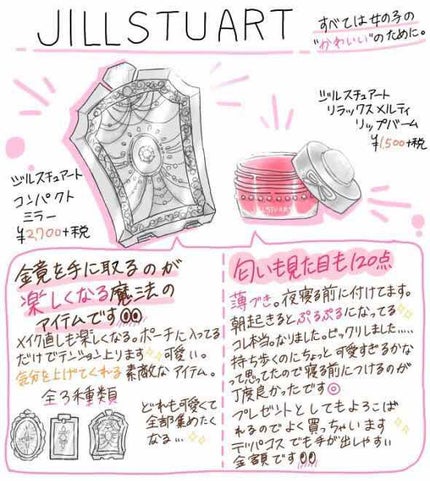 JILLSTUART
すべては女の子の
"かわいい"のために。
ジルスチュアート
リラックスメルティ
リップバーム
¥1,500+税
ジルスチュアート
コンパクト
ミラー
¥2,700+税
JILLSTUART
鏡を手に取るのが
楽しくなる魔法の
アイテムです
メイク直しも楽しくなる。ポーチに入ってる
だけでテンション上ります 可愛い。
気分を上げてくれる 素敵なアイテム。
全3種類
どれも可愛くて
全部集めたく
なる…
匂いも見た目も120点
薄づき。夜寝る前に付けてます。
朝起きるとぷるぷるになってる
コレ本当。なりました。ビックリしました.....
持ち歩くのにちょっと可愛すぎるかな
って思ってたので寝る前につけるのが
丁度良かったです◎
プレゼントとしてもよろこば
れるのでよく買っちゃいます
デパコスでも手が出しやすい
金額です